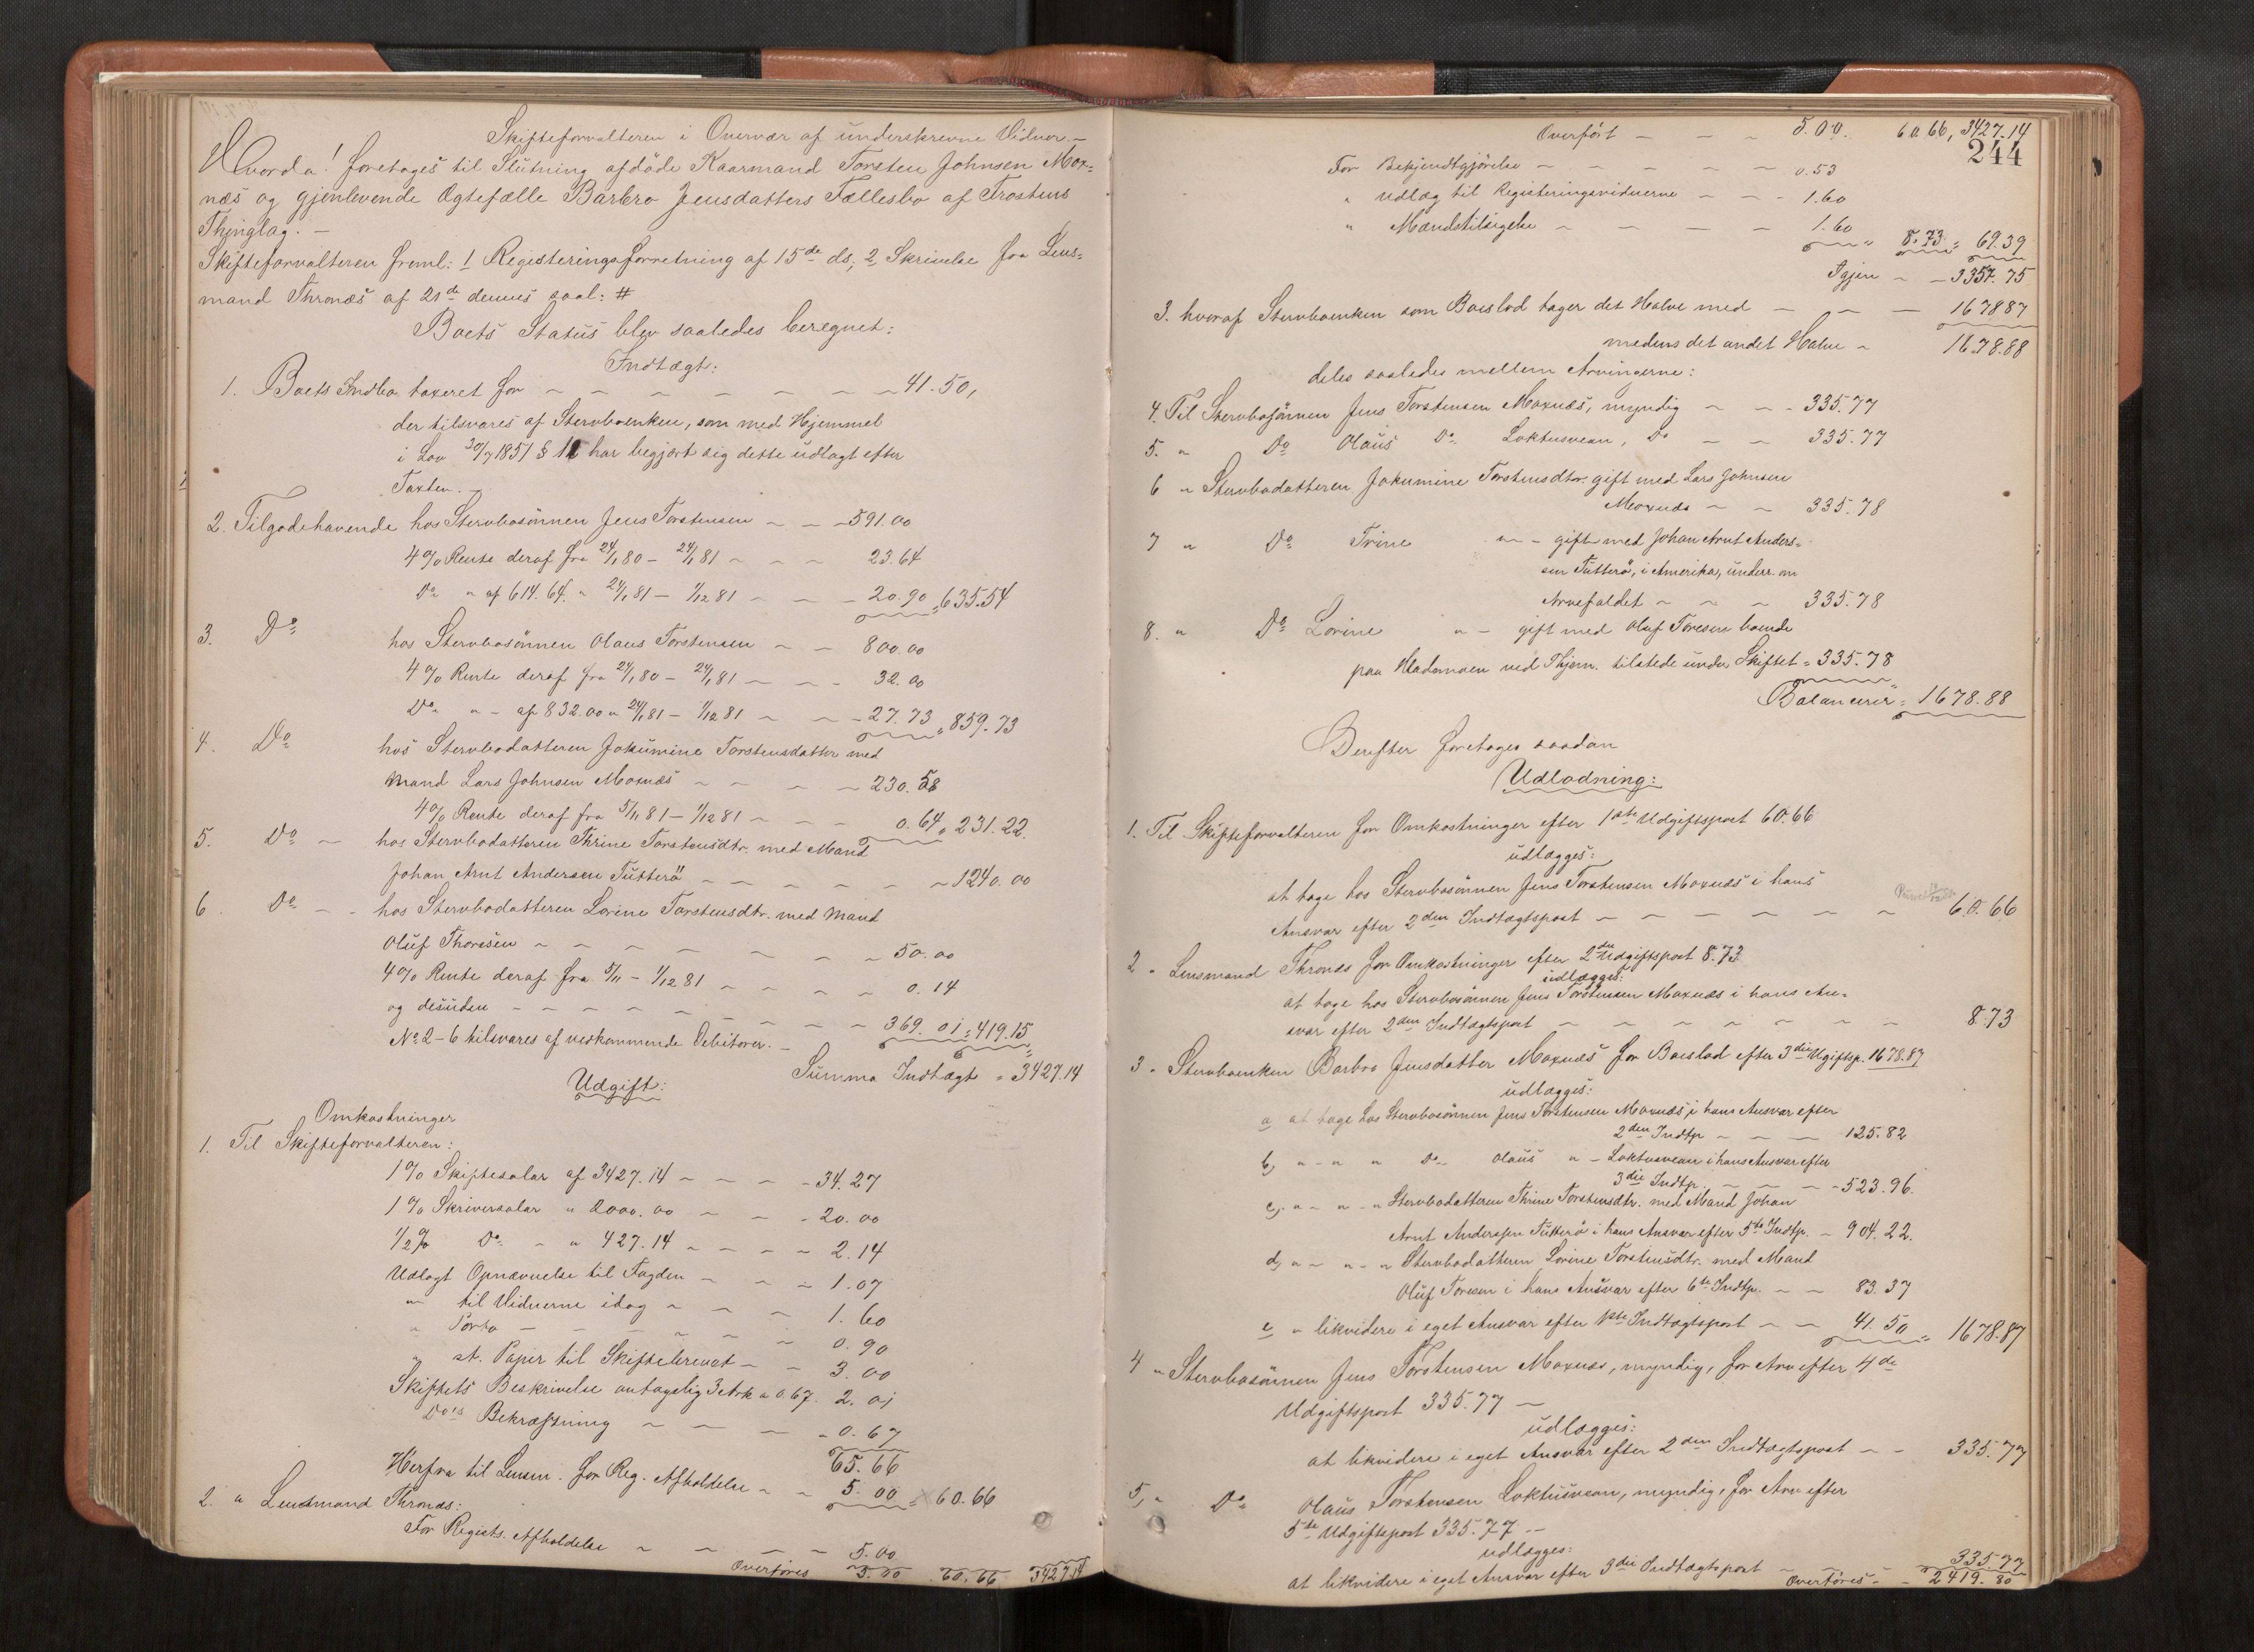 Skifteforvalteren i Overvær af underskrevne Vidner. —
Hvorda! foretoges til Slutning afdöde Kaarmand Torsten Johnsen Mox-
næs og gjenlevende Ægtefælle Barbro Jensdatters Fællesbo af Frostens
Thinglag. —
Skifteforvalteren freml: 1 Registeringsforretning af 15de ds; 2 Skrivelse fra Lens-
mand Thronæs af 21de dennes saal: #
Boets Status blev saaledes beregnet:
Indtægt:
1. Boets Indbo taxeret for — 41.50,
der tilsvares af Stervboenken, som med Hjemmel
i Lov 30/7 1851 § har begjært sig dette udlagt efter
Taxten. —
2. Tilgodehavende hos Stervbosönnen Jens Torstensen — 591.00
4 % Rente deraf fra 24/1 80 — 24/1 81 — 23.64
Do " af 614.64 " 24/1 81 — 1/12 81 — 20.90 " 635.54
3. Do hos Stervbosönnen Olaus Torstensen — 800.00
4 % Rente deraf fra 24/1 80 — 24/1 81 — 32.00
Do " — af 832.00 " 24/1 81 — 1/12 81 — 27.73 " 859.73
4. Do hos Stervbodatteren Jokumine Torstensdatter med
Mand Lars Johnsen Moxnæs — 230.58
4 % Rente deraf fra 5/11 81 — 1/12 81 — 0.64 " 231.22.
5. Do — hos Stervbodatteren Thrine Torstensdtr. med Mand
Johan Arnt Andersen Tutterö — 1240.00
6. Do — hos Stervbodatteren Lorine Torstensdtr. med Mand
Oluf Thoresen — 50.00
4 % Rente deraf fra 5/11 — 1/12 81 — 0.14
og desuden — 369.01 = 419.15
No 2-6 tilsvares af vedkommende Debitorer. —
Summa Indtægt = 3427.14
Udgift:
Omkostninger
1. Til Skifteforvalteren:
1 % Skiftesalar af 3427.14 — 34.27
1 % Skriversalar " 2000.00 — 20.00
1/2 % Do " 427.14 — 2.14
Udlagt Opnævnelse til Fogden — 1.07
" til Vidnerne idag — 1.60
" Porto — 0.90
" st. Papir til Skiftebrevet — 3.00
Skiftets Beskrivelse antagelig 3 Ark a 0.67. 2.01
Do's Bekræftning — 0.67
65.66
Herfra til Lensm. for Reg. Afholdelse — 5.00 = 60.66
2. " Lensmand Thronæs:
For Registr. Afholdelse — 5.00
Overføres 5.00 60.66 3427.14
244
Overfört — 5.00. 60.66, 3427.14
For Bekjendtgjörelse — 0.53
" Udlæg til Registeringsvidnerne — 1.60
" Mandstilsigelse — 1.60
" 8.73 " 69.39
Igjen — 3357.75
3. hvoraf Stervboenken som Boeslod tager det Halve med — 1678 87
medens det andet Halve — 1678.88
deles saaledes mellem Arvingerne:
4. Til Stervbosönnen Jens Torstensen Moxnæs, myndig — 335.77
5. " Do Olaus Do Loktusvean, Do — 335.77
6 " Stervbodatteren Jokumine Torstensdtr. gift med Lars Johnsen
Moxnæs — 335.78
7 " Do Trine " — gift med Johan Arnt Anders-
sen Tutterö, i Amerika, underr. om
Arvefaldet — 335.78
8. " Do Lorine " — gift med Oluf Toresen boende
paa Hademoen ved Thjem. tilstede under Skiftet = 335.78
Balancerer = 1678.88
Derefter foretoges saadan
Udlodning:
1. Til Skifteforvalteren for Omkostninger efter 1ste Udgiftspost 60.66
udlægges:
at tage hos Stervbosönnen Jens Torstensen Moxnæs i hans
Ansvar efter 2den Indtægtspost — 60.66
2 " Lensmand Thronæs for Omkostninger efter 2den Udgiftspost 8.73
udlægges:
at tage hos Stervbosönnen Jens Torstensen Moxnæs i hans An-
svar efter 2den Indtægtspost — 8.73
3 " Stervboenken Barbro Jensdatter Moxnæs for Boeslod efter 3die Udgiftsp. 1678.87
udlægges:
a at tage hos Stervbosönnen Jens Torstensen Moxnæs i hans Ansvar efter
2den Indtp — 125.82
b, " — " " Do Olaus " — Loktusvean i hans Ansvar efter
3die Indtp. — 523.96.
c, " — " — " Stervbodatteren Thrine Torstensdtr. med Mand Johan
Arnt Andersen Tutterö i hans Ansvar efter 5te Indtp. — 904.22.
d, " — " — " Stervbodatteren Lorine Torstensdtr. med Mand
Oluf Toresen i hans Ansvar efter 6te Indtp. — 83.37
e " likvidere i eget Ansvar efter 1ste Indtægtspost — 41.50 = 1678.87
4 " Stervbosönnen Jens Torstensen Moxnæs, myndig, for Arv efter 4de
Udgiftspost 335.77 —
udlægges:
at likvidere i eget Ansvar efter 2den Indtægtspost — 335.77
5, " Do Olaus Torstensen Loktusvean, myndig, for Arv efter
5te Udgiftspost 335.77 —
udlægges:
at likvidere i eget Ansvar efter 3die Indtægtspost — 335.77
Overföres — 2419.80